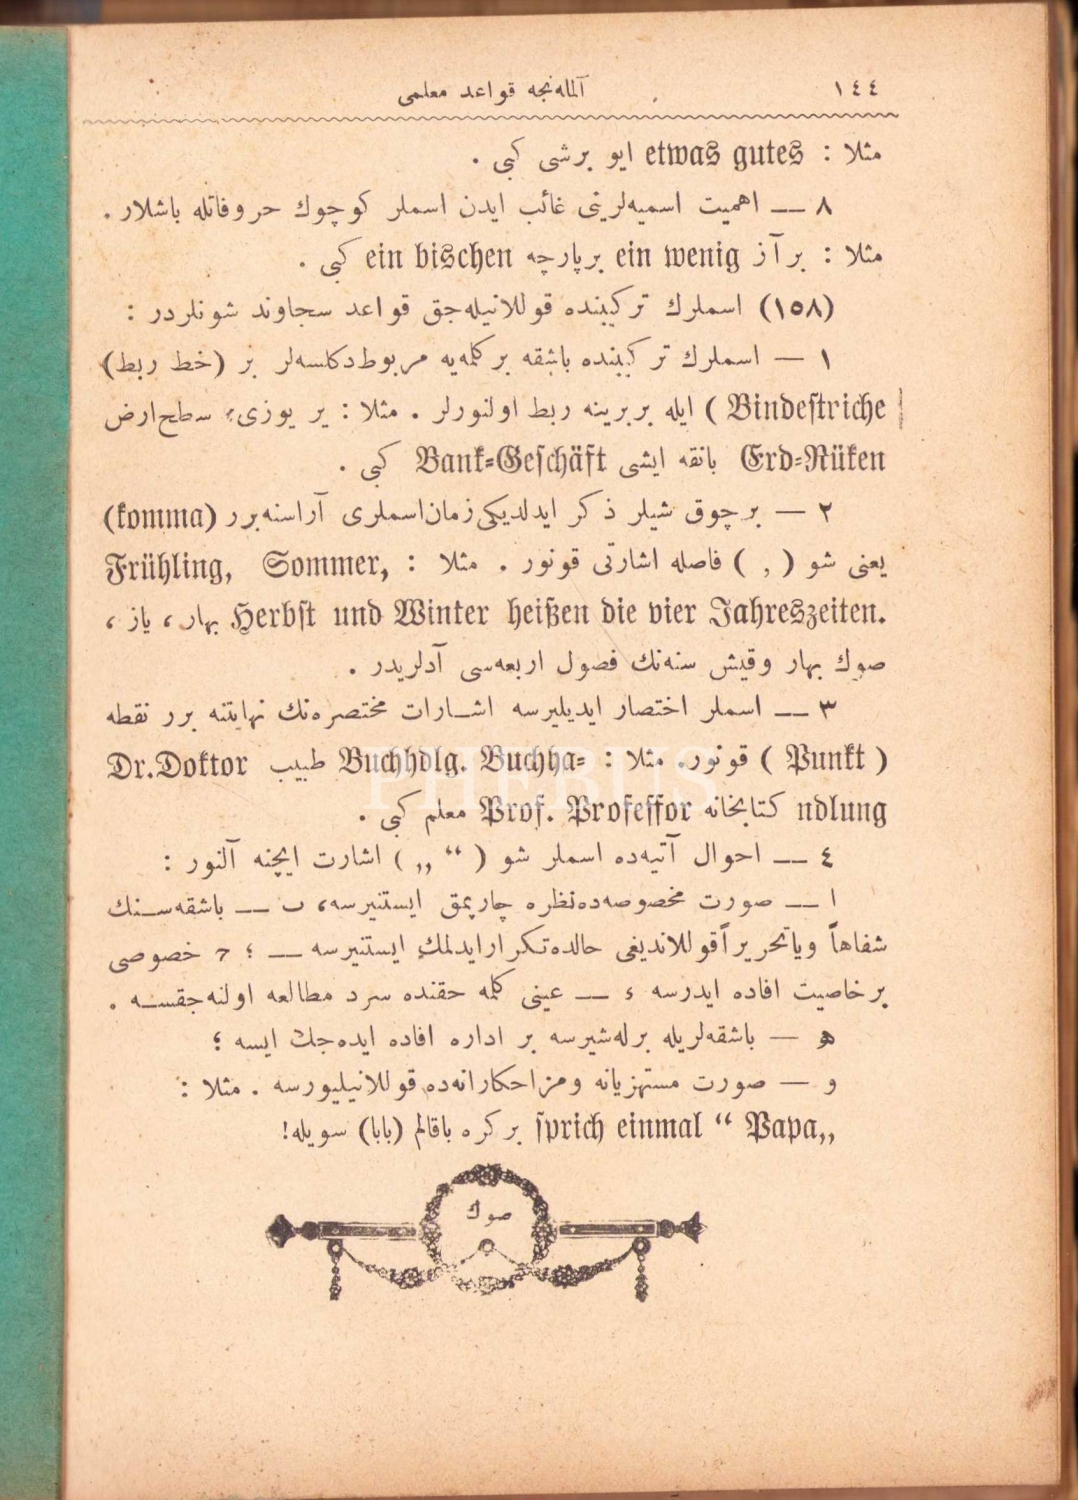 ١٤٤ آلمانجه قواعد معلمی
مثلا : etwas gutes ايو برشی كبی .
٨ — اهميت اسميه‌لرينی غائب ايدن اسملر كوچوك حروفاتله باشلار .
مثلا : برآز ein wenig برپارچه ein bischen كبی .
(١٥٨) اسملرك تركيبنده قوللانيله‌جق قواعد سجاوند شونلردر :
١ — اسملرك تركيبنده باشقه بركلمه‌يه مربوط‌دكلسه‌لر بر (خط ربط)
Bindestriche ) ايله بربرينه ربط اولنورلر . مثلا : ير يوزی، سطح‌ارض
Erd=Rüken بانقه ايشی Bank=Geschäft كبی .
٢ — برچوق شيلر ذكر ايدلديكی‌زمان‌اسملری آراسنه‌برر (komma)
يعنی شو ( , ) فاصله اشارتی قونور . مثلا : Frühling, Sommer,
Herbst und Winter heißen die vier Jahreszeiten. بهار، ياز ،
صوك بهار وقيش سنه‌نك فصول اربعه‌سی آدلريدر .
٣ — اسملر اختصار ايديليرسه اشارات مختصره‌نك نهايتنه برر نقطه
( Punkt ) قونور. مثلا : Buchhdlg. Buchha= طبيب Dr.Doktor
ndlung كتابخانه Prof. Professor معلم كبی .
٤ — احوال آتيه‌ده اسملر شو ( “ „ ) اشارت ايچنه آلنور :
ا — صورت مخصوصه‌ده‌نظره چارپمق ايستنيرسه، ب — باشقه‌سنك
شفاهاً وياتحريراً قوللانديغی حالده‌تكرارايدلمك ايستنيرسه — ؛ ج خصوصی
برخاصيت افاده ايدرسه ء — عينی كلمه حقنده سرد مطالعه اولنه‌جقسه .
ه — باشقه‌لريله برله‌شيرسه بر اداره افاده ايده‌جك ايسه ؛
و — صورت مستهزيانه ومزاحكارانه‌ده قوللانيليورسه . مثلا :
„sprich einmal “ Papa بركره باقالم (بابا) سويله!
صوك
PHEBUS